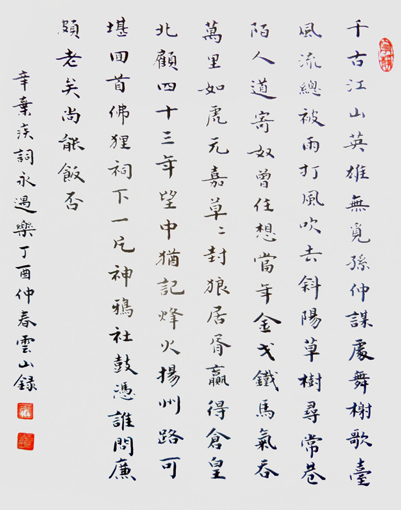 千古江山英雄無覓孫仲謀處舞榭歌臺
風流總被雨打風吹去斜陽草樹尋常巷
陌人道寄奴曾住想當年金戈鐵馬氣吞
萬里如虎元嘉草〻封狼居胥贏得倉皇
北顧四十三年望中猶記烽火揚州路可
堪回首佛狸祠下一片神鴉社鼓憑誰問廉
頗老矣尚能飯否
辛棄疾詞永遇樂丁酉仲春雲山錄